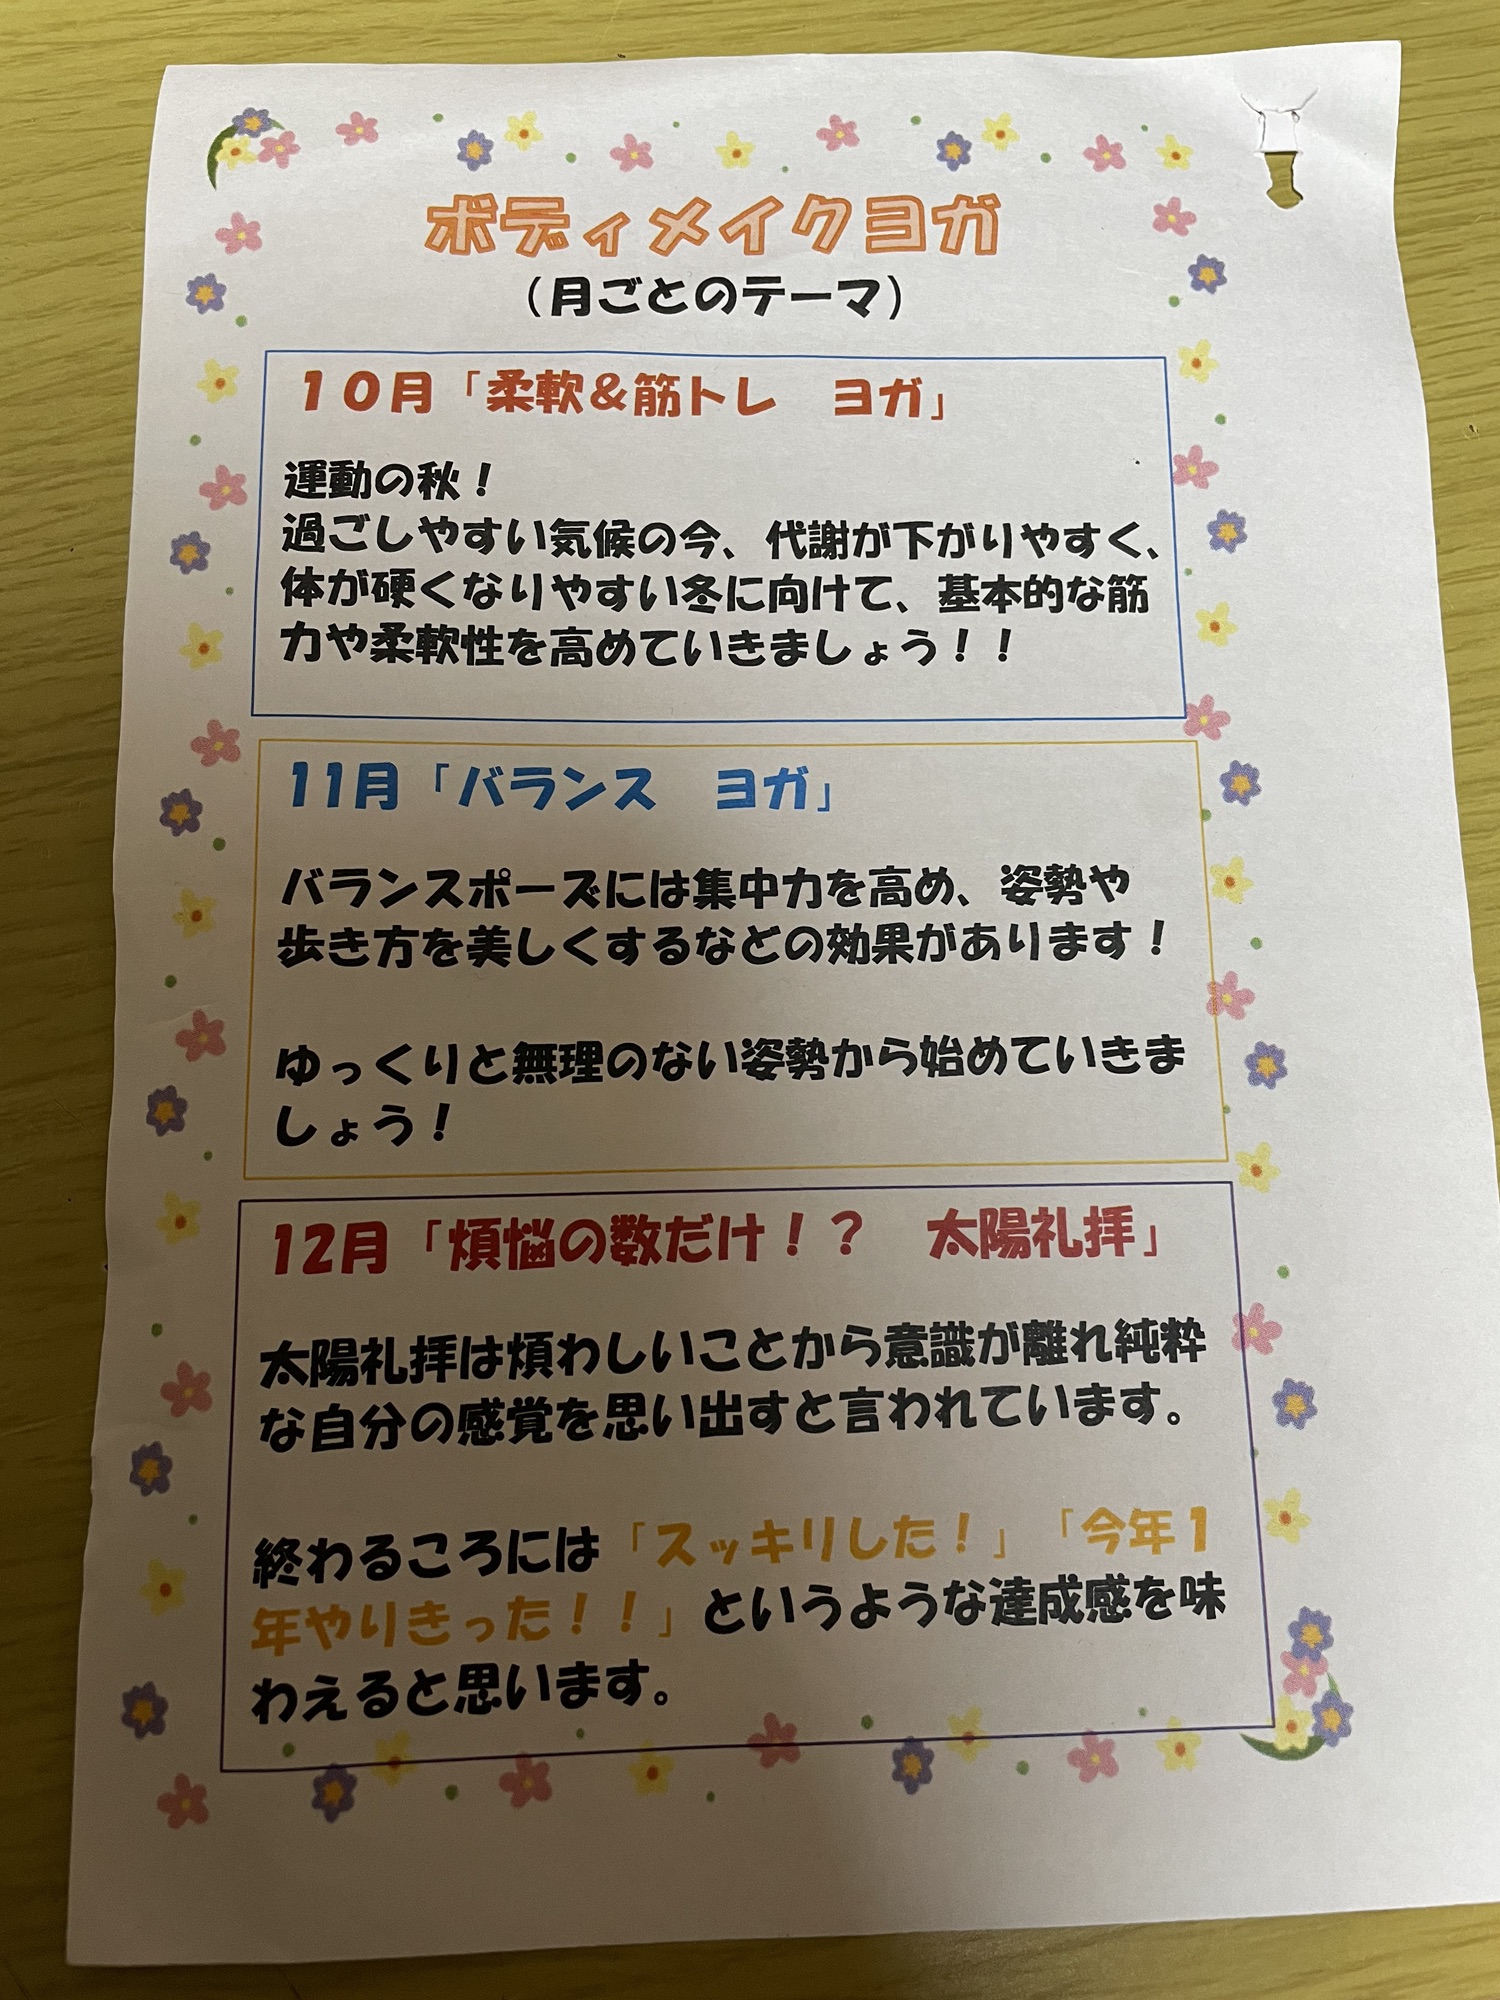 ボディメイクヨガ
（月ごとのテーマ）
１０月「柔軟＆筋トレ　ヨガ」
運動の秋！
過ごしやすい気候の今、代謝が下がりやすく、
体が硬くなりやすい冬に向けて、基本的な筋
力や柔軟性を高めていきましょう！！
11月「バランス　ヨガ」
バランスポーズには集中力を高め、姿勢や
歩き方を美しくするなどの効果があります！
ゆっくりと無理のない姿勢から始めていきま
しょう！
12月「煩悩の数だけ！？　太陽礼拝」
太陽礼拝は煩わしいことから意識が離れ純粋
な自分の感覚を思い出すと言われています。
終わるころには「スッキリした！」「今年１
年やりきった！！」というような達成感を味
わえると思います。